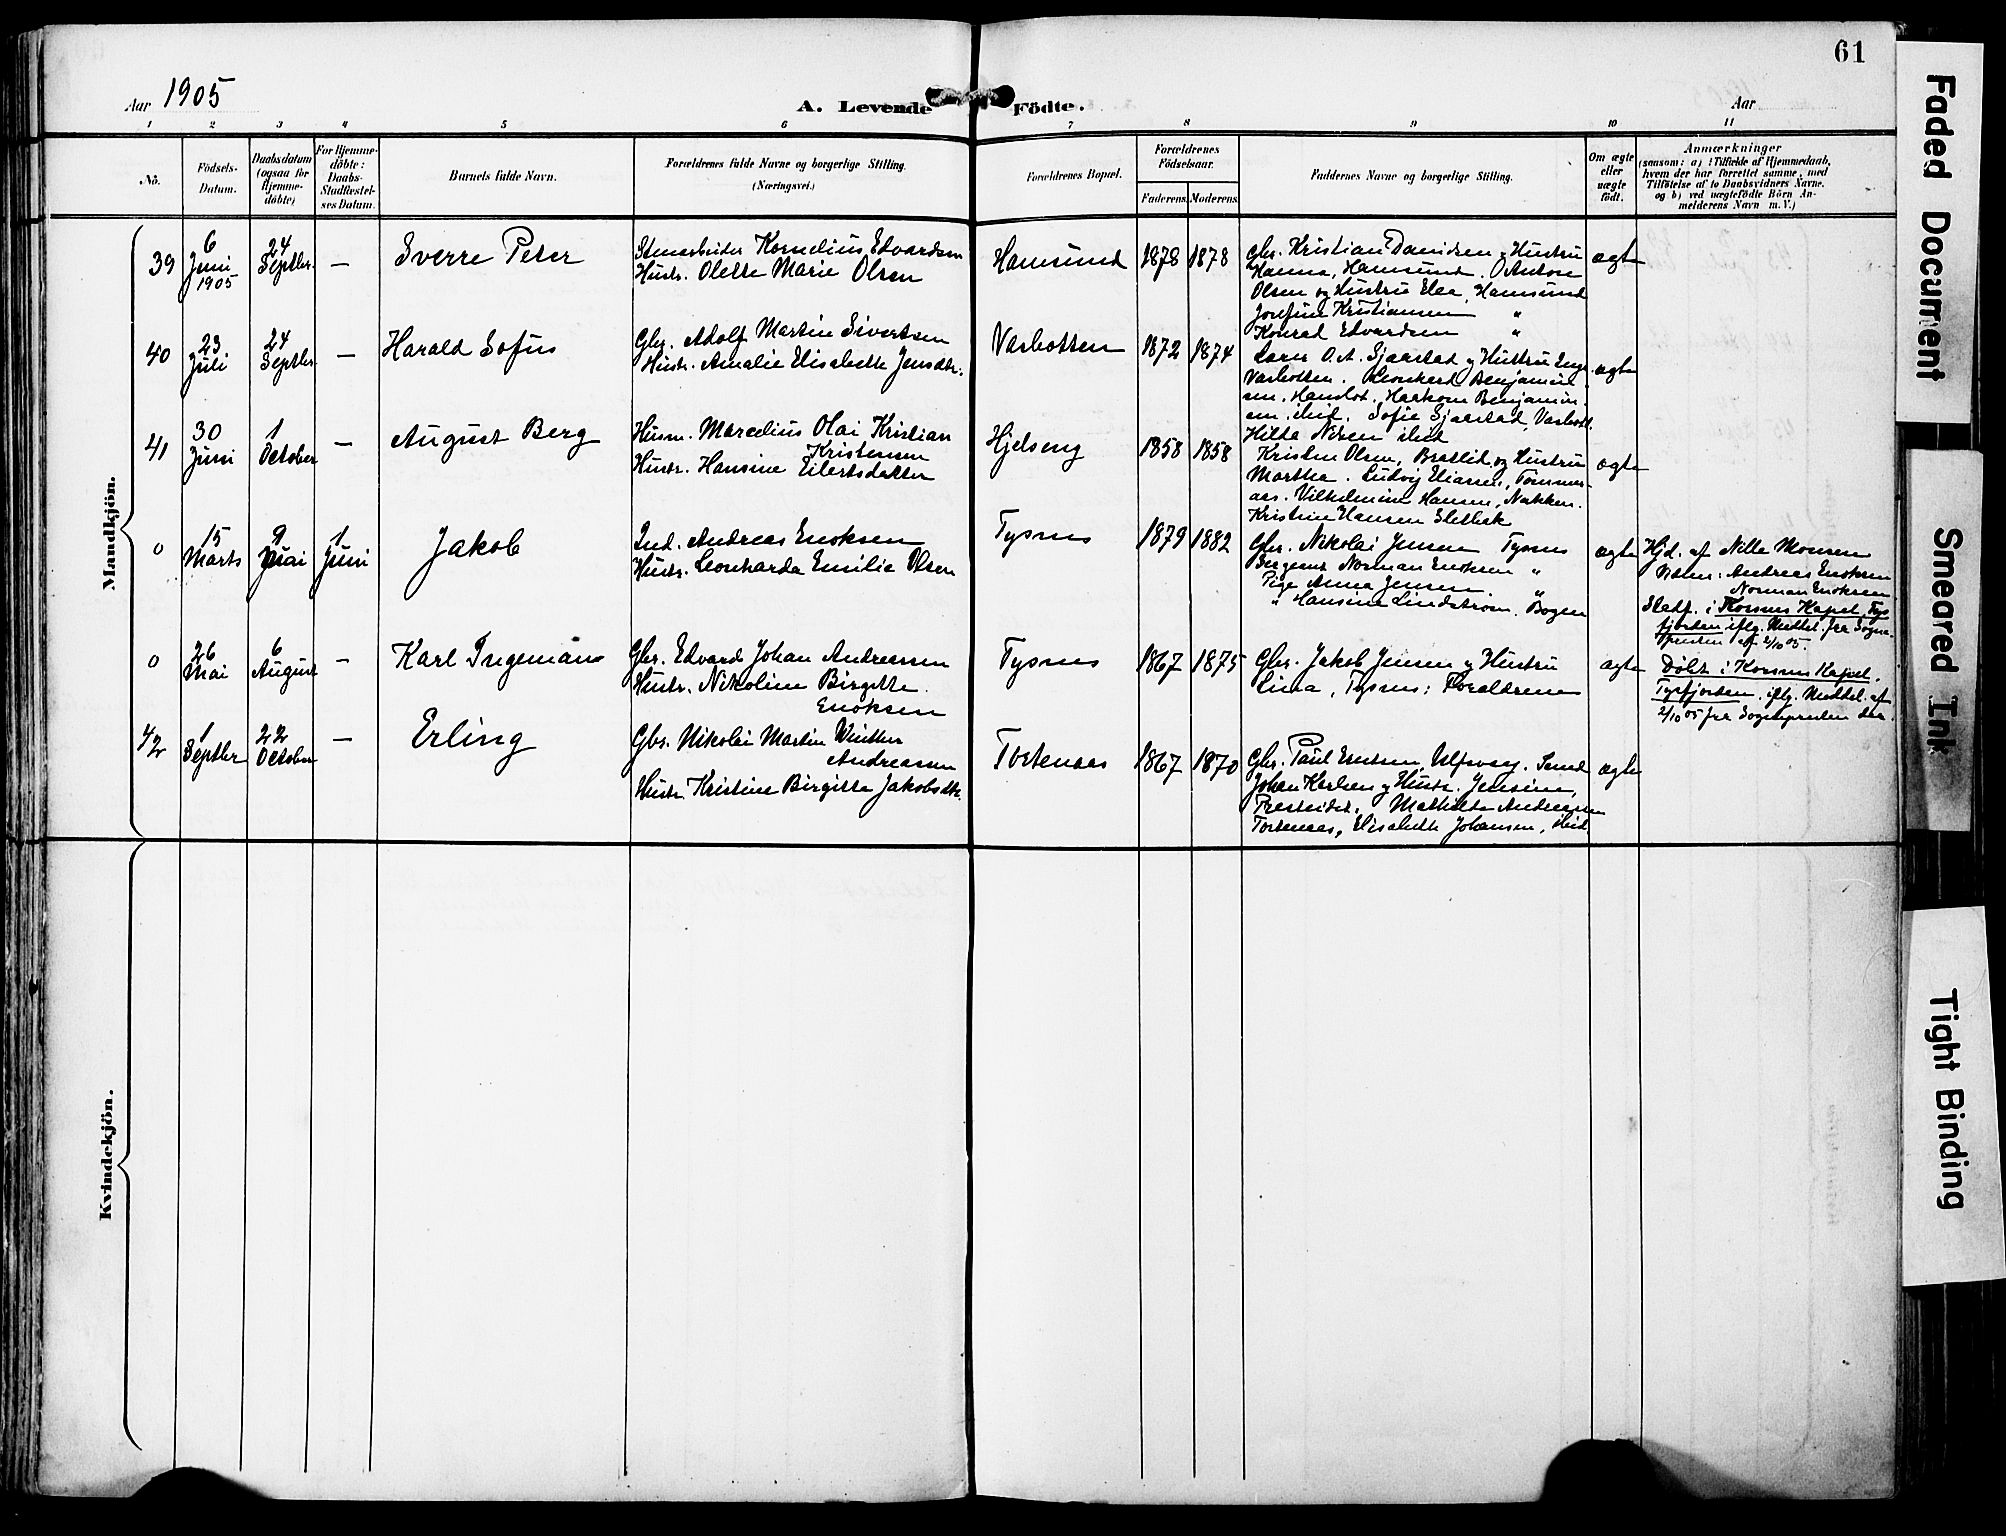 61
Aar 1905
A. Levende Födte.
Aar
1 2 3 4 5 6 7 8 9 10 11
No.
Födsels-
Datum.
Daabsdatum
(ogsaa for
Hjemme-
döbte)
For Hjemme-
döbte:
Daabs-
Stadfæstel-
ses Datum.
Barnets fulde Navn.
Forældrenes fulde Navne og borgerlige Stilling.
(Næringsvei.)
Forældrenes Bopæl.
Forældrenes
Födselsaar.
Faderens Moderens
Faddernes Navne og borgerlige Stilling.
Om ægte
eller
uægte
født.
Anmærkninger
(saasom: a) i Tilfælde af Hjemmedaab,
hvem der har forrettet samme, med
Tilföielse af to Daabsvidners Navne,
og b) ved uægtefödte Börn An-
melderens Navn m. V.)
Mandkjön.
39
6
Juni
1905
24
Septbr.
—
Sverre Peter
Stenarbeider Kornelius Edvardsen
Hustr. Olette Marie Olsen
Hamsund
1878
1878
Gbr. Kristian Danielsen og Hustru
Hanna, Hamsund. Anton
Olsen og Hustru Elea, Hamsund
Josefine Kristiansen "
Konrad Edvardsen "
ægte
40
23
Juli
24
Septbr
—
Harald Sofus
Gbr. Adolf Martin Sivertsen
Hustr. Amalie Elisabeth Jensdtr.
Varbotten
1872
1874
Lars O. A. Sjaastad og Hustru Inga
Varbotten. Leonhard Benjamin
sen, Hamlot. Haakon Benjamin
sen, ibid. Sofie Sjaastad, Varbott.
Hilda Nilsen ibid
ægte
41
30
Juni
1
October
—
August Berg
Husm. Marcelius Olai Kristian
Kristensen
Hustr. Hansine Eilertsdatter
Hjelseng
1858
1858
Kristen Olsen, Bratlid og Hustru
Martha. Ludvig Eliassen, Tømmer-
aas. Vilhelmine Hansen, Nakken.
Kristine Hansen
ægte
0
15
Marts
9
Mai
1
Juni
Jakob
Ind. Andreas Enoksen
Hustr. Leonharda Emilie Olsen
Tysnes
1879
1882
Gbr. Nikolai Jensen Tysnes
Norman Enoksen "
Pige Anna Jensen "
" Hansine Lindstrøm. Bogen
ægte
Hjd. af Nille Monsen
Vidner: Andreas Enoksen
Norman Enoksen
Stadf. i Korsnes Kapel, Tys
fjorden iflg. Meddel. fra Sogne-
præsten af 2/10 05.
0
26
Mai
6
August
—
Karl Ingeman
Gbr. Edvard Johan Andreassen
Hustr. Nikoline Birgitte
Enoksen
Tysnes
1867
1875
Gbr. Jakob Jensen og Hustru
Lina, Tysnes: Forældrene
ægte
Døbt i Korsnes Kapel,
Tysfjorden, iflg. Meddel. af
2/10 05 fra Sognepresten der.
42
1
Septbr
22
October
—
Erling
Gbr. Nikolai Martin Winther
Andreassen
Hustr. Kristine Birgitte Jakobsdtr.
Tortenaas
1867
1870
Gbr. Paul Ulfsvag.
Johan Karlsen og Hustr. Jensine,
Presteidet. Mathilde Andreassen
Tortenaas, Elisabeth Johansen, ibid.
ægte
Kvindekjön.
Faded Document
Smeared Ink
Tight Binding